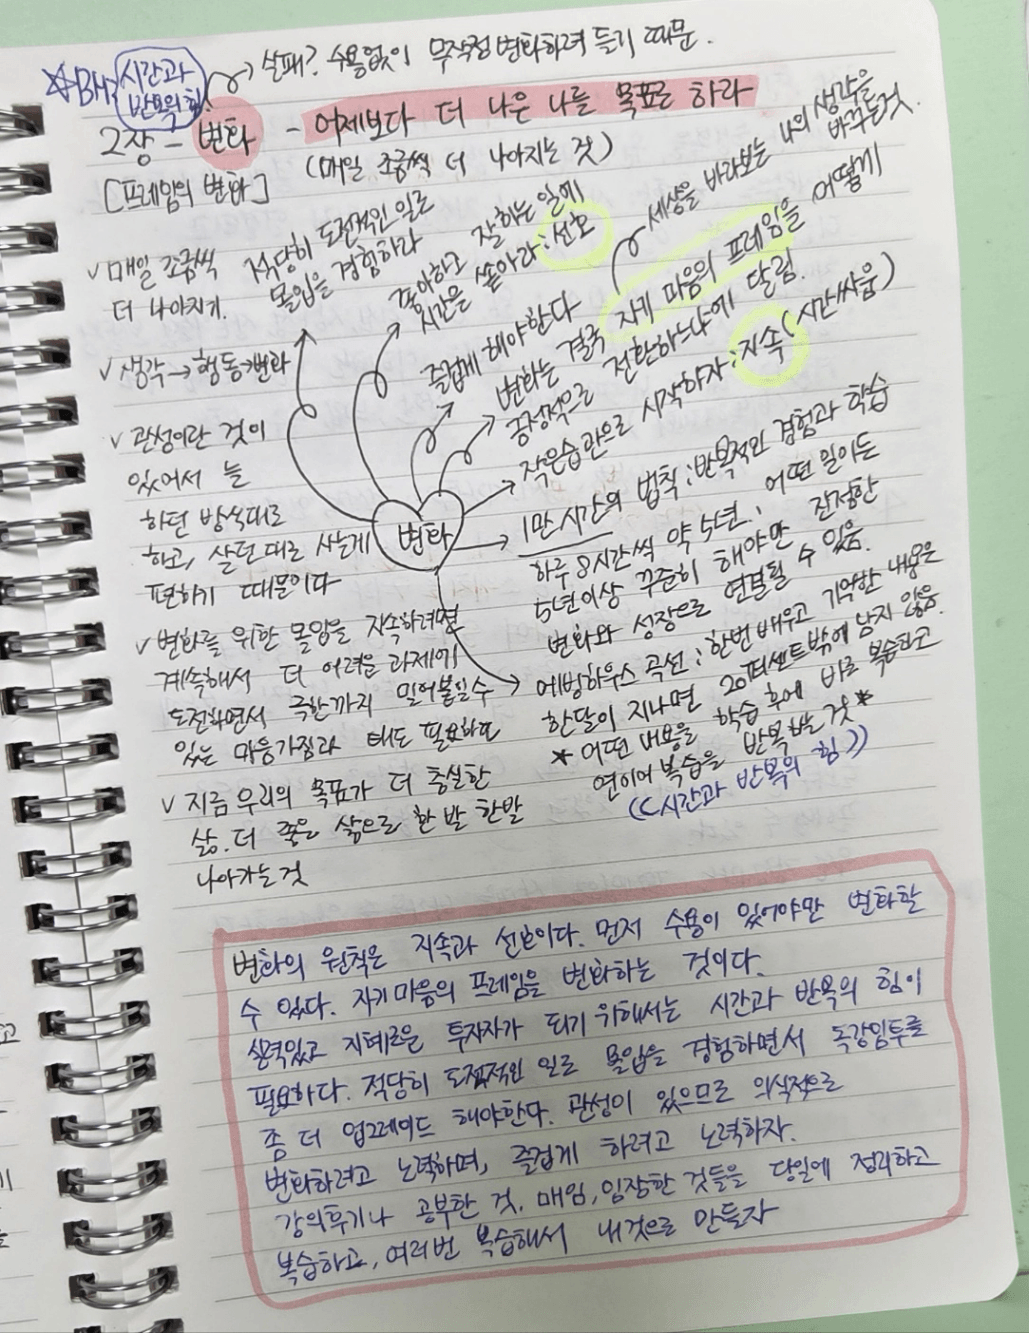 ☆BM: 시간과 반복의 힘
실패? 수용없이 무작정 변화하려 들기 때문.
2장 - 변화 - 어제보다 더 나은 나를 목표로 하라
(매일 조금씩 더 나아지는 것)
[프레임의 변화]
✓ 매일 조금씩
더 나아지기.
✓ 생각 → 행동 → 변화
✓ 관성이란 것이
있어서 늘
하던 방식대로
하고, 살던 대로 사는게
편하기 때문이다
✓ 변화를 위한 몰입을 지속하려면
계속해서 더 어려운 과제에
도전하면서 극한까지 밀어붙일 수
있는 마음가짐과 태도 필요하며
✓ 지금 우리의 목표가 더 충실한
삶. 더 좋은 삶으로 한 발 한발
나아가는 것
변화
적당히 도전적인 일로
몰입을 경험하라
좋아하고 잘하는 일에
시간을 쏟아라 : 선호
즐겁게 해야한다
세상을 바라보는 나의 생각을
바꾸는것.
변화는 결국 자기 마음의 프레임을 어떻게
긍정적으로 전환하느냐에 달림.
작은습관으로 시작하자 : 지속 (시간싸움)
1만 시간의 법칙 : 반복적인 경험과 학습
하루 8시간씩 약 5년. 어떤 일이든
5년이상 꾸준히 해야만 진정한
변화와 성장으로 연결될 수 있음.
에빙하우스 곡선 : 한번 배우고 기억한 내용은
한달이 지나면 20퍼센트밖에 남지 않음.
* 어떤 내용을 학습 후에 바로 복습하고
연이어 복습을 반복하는 것 *
(( 시간과 반복의 힘 ))
변화의 원칙은 지속과 선호이다. 먼저 수용이 있어야만 변화할
수 있다. 자기마음의 프레임을 변화하는 것이다.
실력있고 지혜로운 투자자가 되기 위해서는 시간과 반복의 힘이
필요하다. 적당히 도전적인 일로 몰입을 경험하면서 독강임투를
좀 더 업그레이드 해야한다. 관성이 있으므로 의식적으로
변화하려고 노력하며, 즐겁게 하려고 노력하자.
강의후기나 공부한 것, 매임, 임장한 것들을 당일에 정리하고
복습하고, 여러번 복습해서 내것으로 만들자